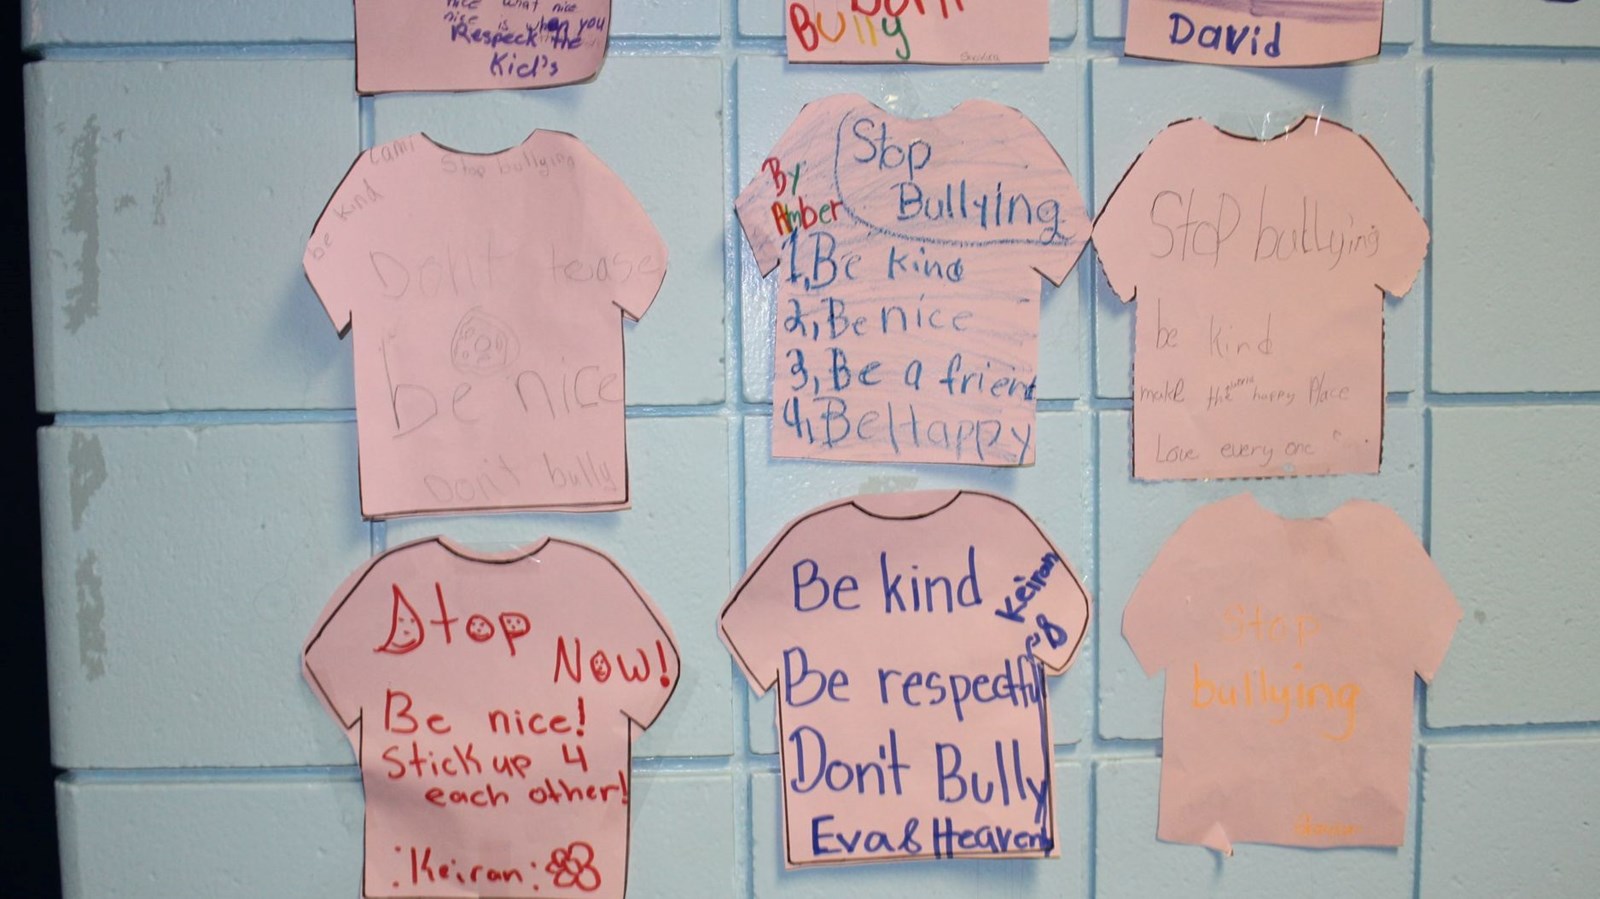 nice what nice
nice is when you
Respeck the
Kid's
Don't
Bully
David
Cami
be kind
Stop bullying
Don't tease
be nice
Don't bully
By
Amber
Stop
Bullying
1, Be kind
2, Be nice
3, Be a friend
4, Be Happy
Stop bullying
be kind
make the world happy Place
Love every one
Stop
Now!
Be nice!
Stick up 4
each other!
:Keiran:
Be kind
Keiran
Be respectful
Don't Bully
Eva & Heaven
Stop
bullying